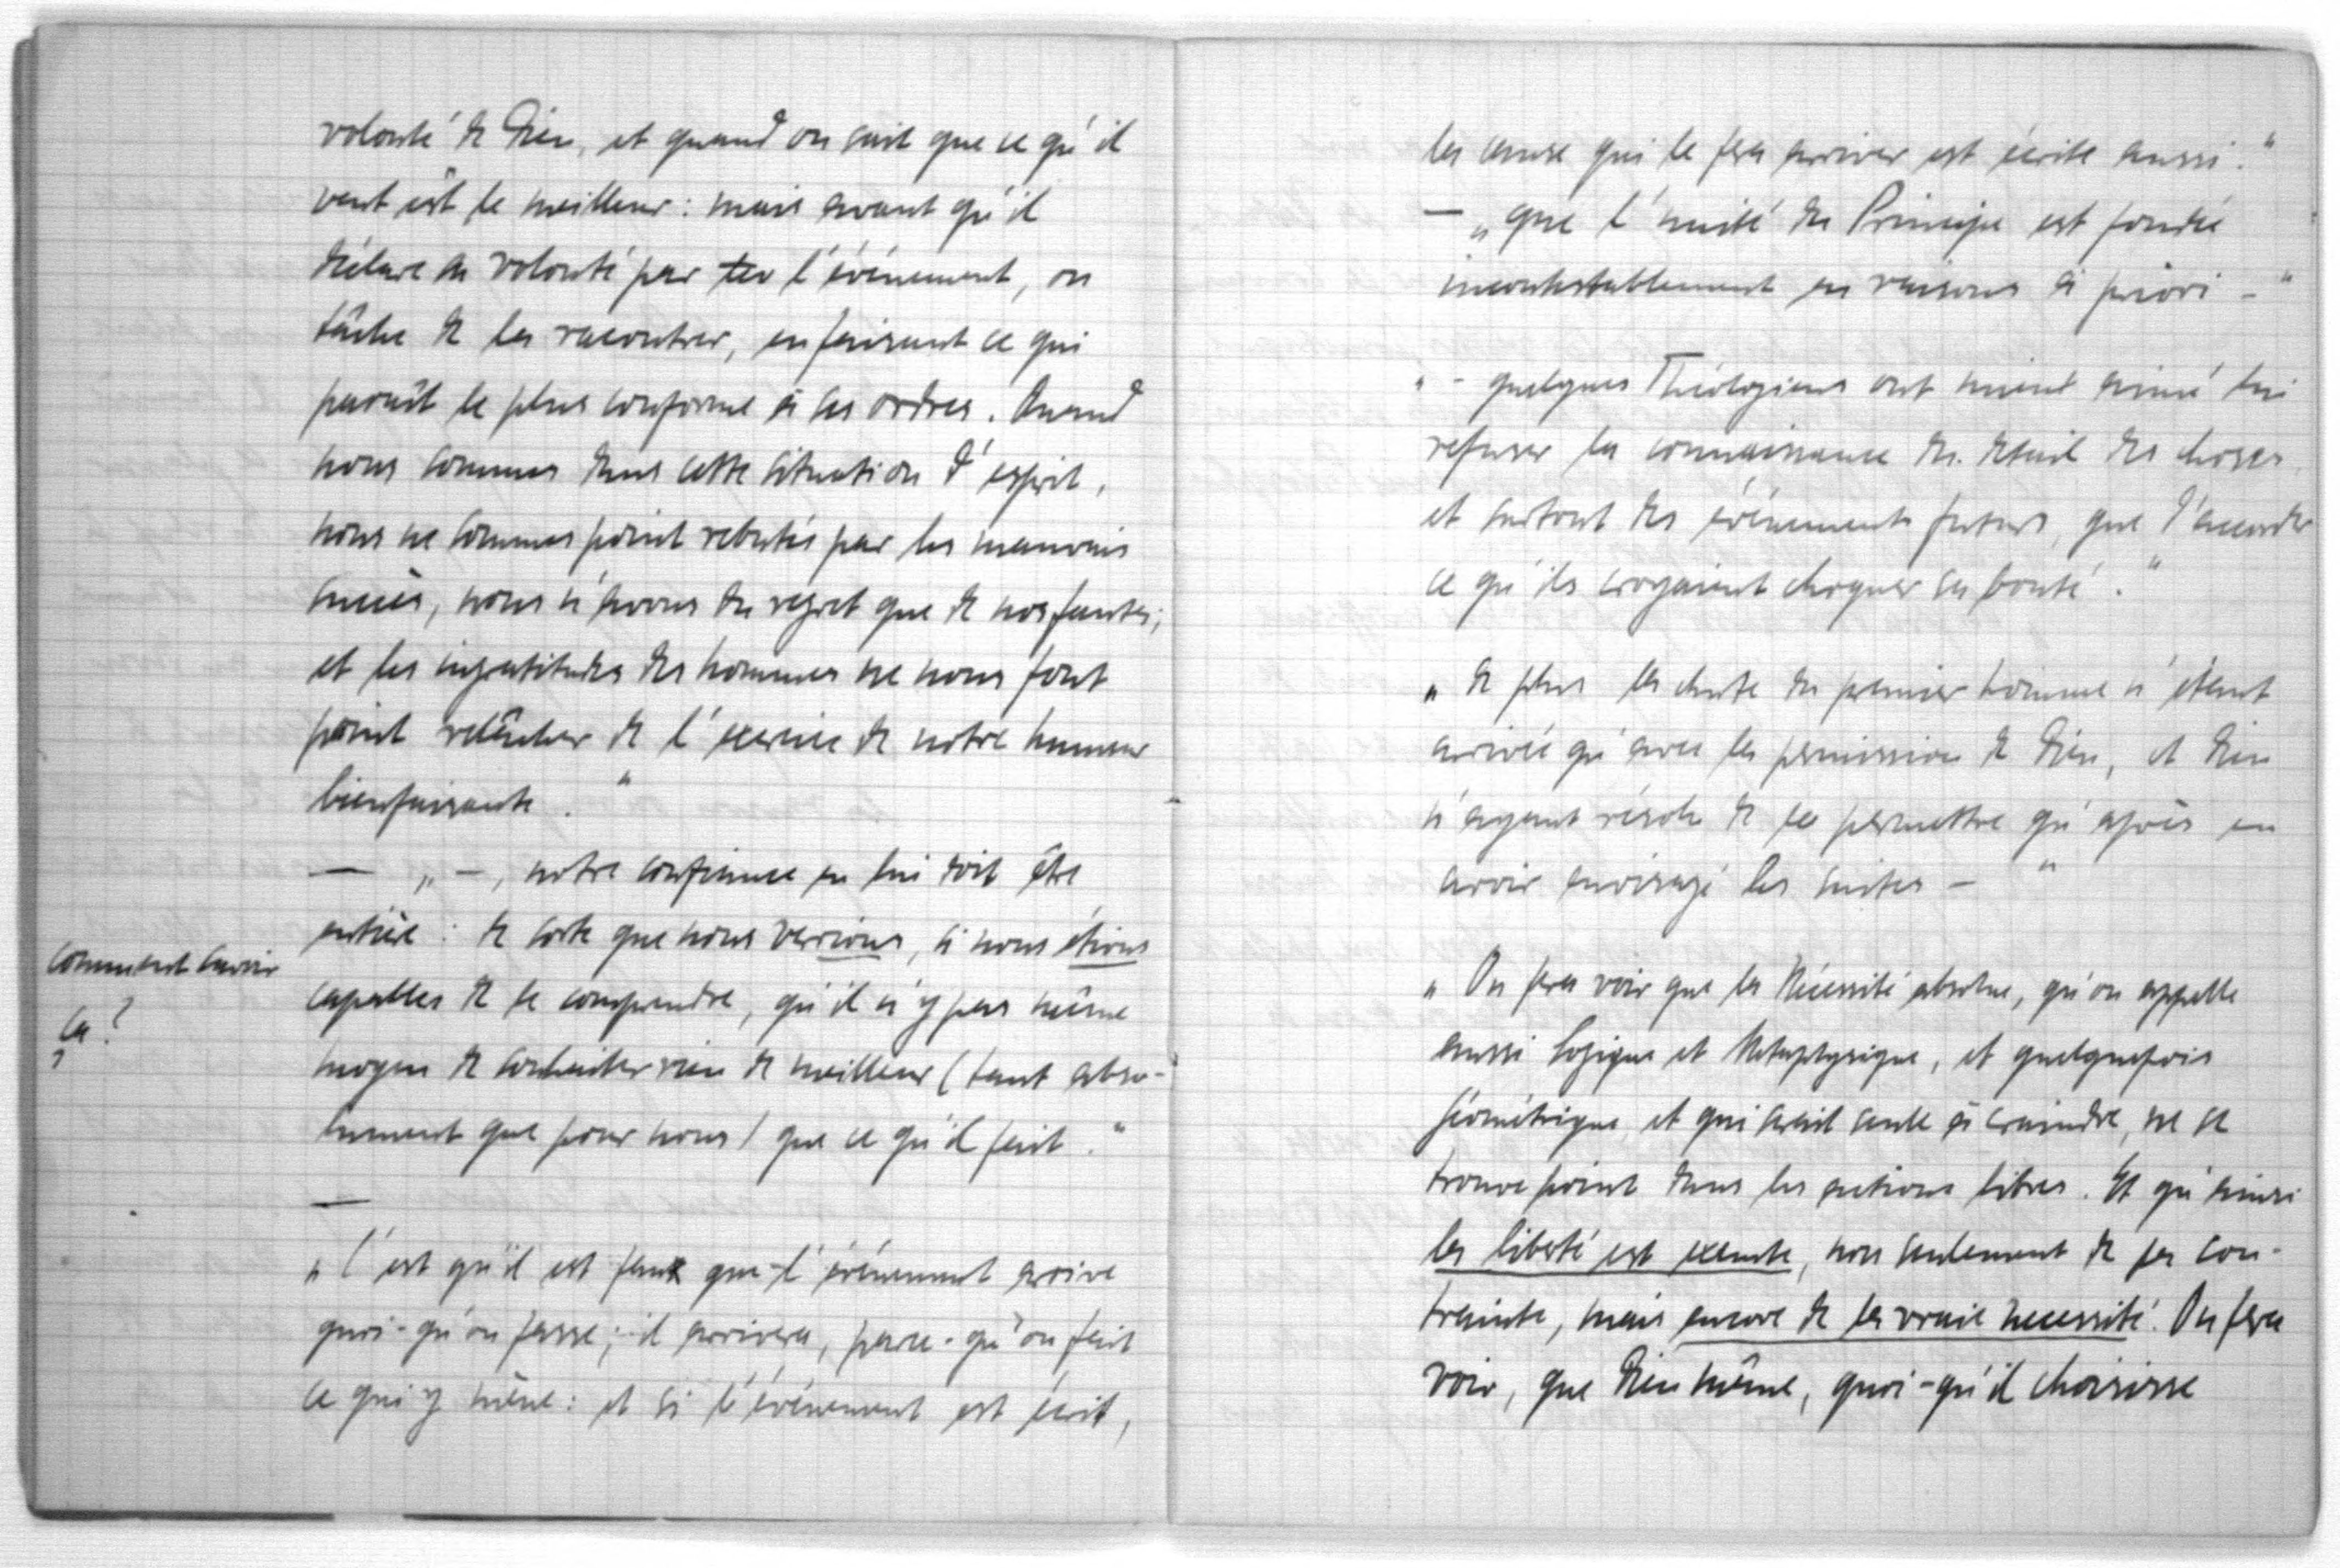 volonté de Dieu, et quand on sait que ce qu'il
veut est le meilleur: mais avant qu'il
déclare sa volonté par l'événement, on
tâche de la racontrer, en faisant ce qui
paroît le plus conforme à ses ordres. Quand
nous sommes dans cette situation d'esprit,
nous ne sommes point rebutés par les mauvais
succès, nous n'avons du regret que de nos fautes;
et les ingratitudes des hommes ne nous font
point relâcher de l'exercice de notre humeur
bienfaisante."
— „—, notre confiance en lui doit être
entière: de sorte que nous verrions, si nous étions
comment savoir
ça?
capables de le comprendre, qu'il n'y pas même
moyen de souhaiter rien de meilleur (tant abso-
lument que pour nous) que ce qu'il fait."
—
„C'est qu'il est faux que l'événement arrive
quoi-qu'on fasse; il arrivera, parce-qu'on fait
ce qui y mène: et si l'événement est écrit,
la cause qui le fera arriver est écrite aussi."
— „que l'unité du Principe est fondée
incontestablement en raisons à priori -"
„- quelques Théologiens ont mieux aimé lui
refuser la connaissance du detail des choses
et surtout des événements futurs, que d'accorder
ce qu'ils croyaient choquer sa bonté."
„De plus la chute du premier homme n'étant
arrivée qu'avec la permission de Dieu, et Dieu
n'ayant résolu de la permettre qu'après en
avoir envisagé les suites -"
„On fera voir que la Nécessité absolue, qu'on appelle
aussi Logique et Metaphysique, et quelquefois
Géométrique et qui serait seule à craindre, ne se
trouve point dans les actions libres. Et qu'ainsi
la liberté est exemte, non seulement de la con-
trainte, mais encore de la vraie necessité. On fera
voir, que Dieu même, quoi-qu'il choisisse